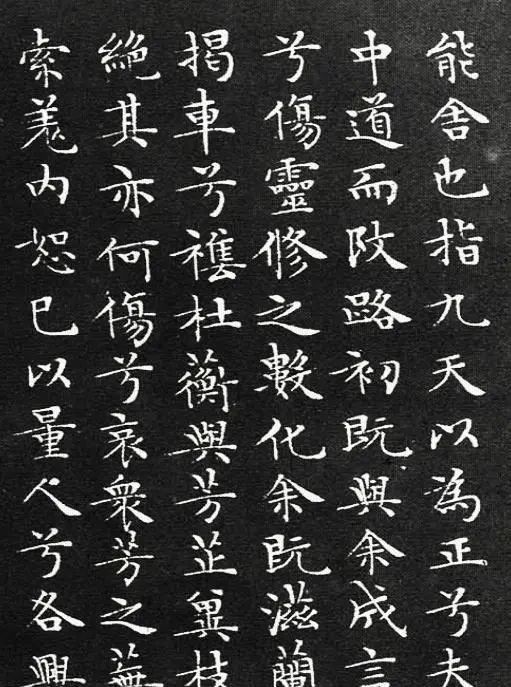 能舍也指九天以為正兮夫
中道而改路初既與余成言
兮傷靈修之數化余既滋蘭
揭車兮雜杜蘅與芳芷冀枝
絕其亦何傷兮哀衆芳之蕪
索羌内恕已以量人兮各興